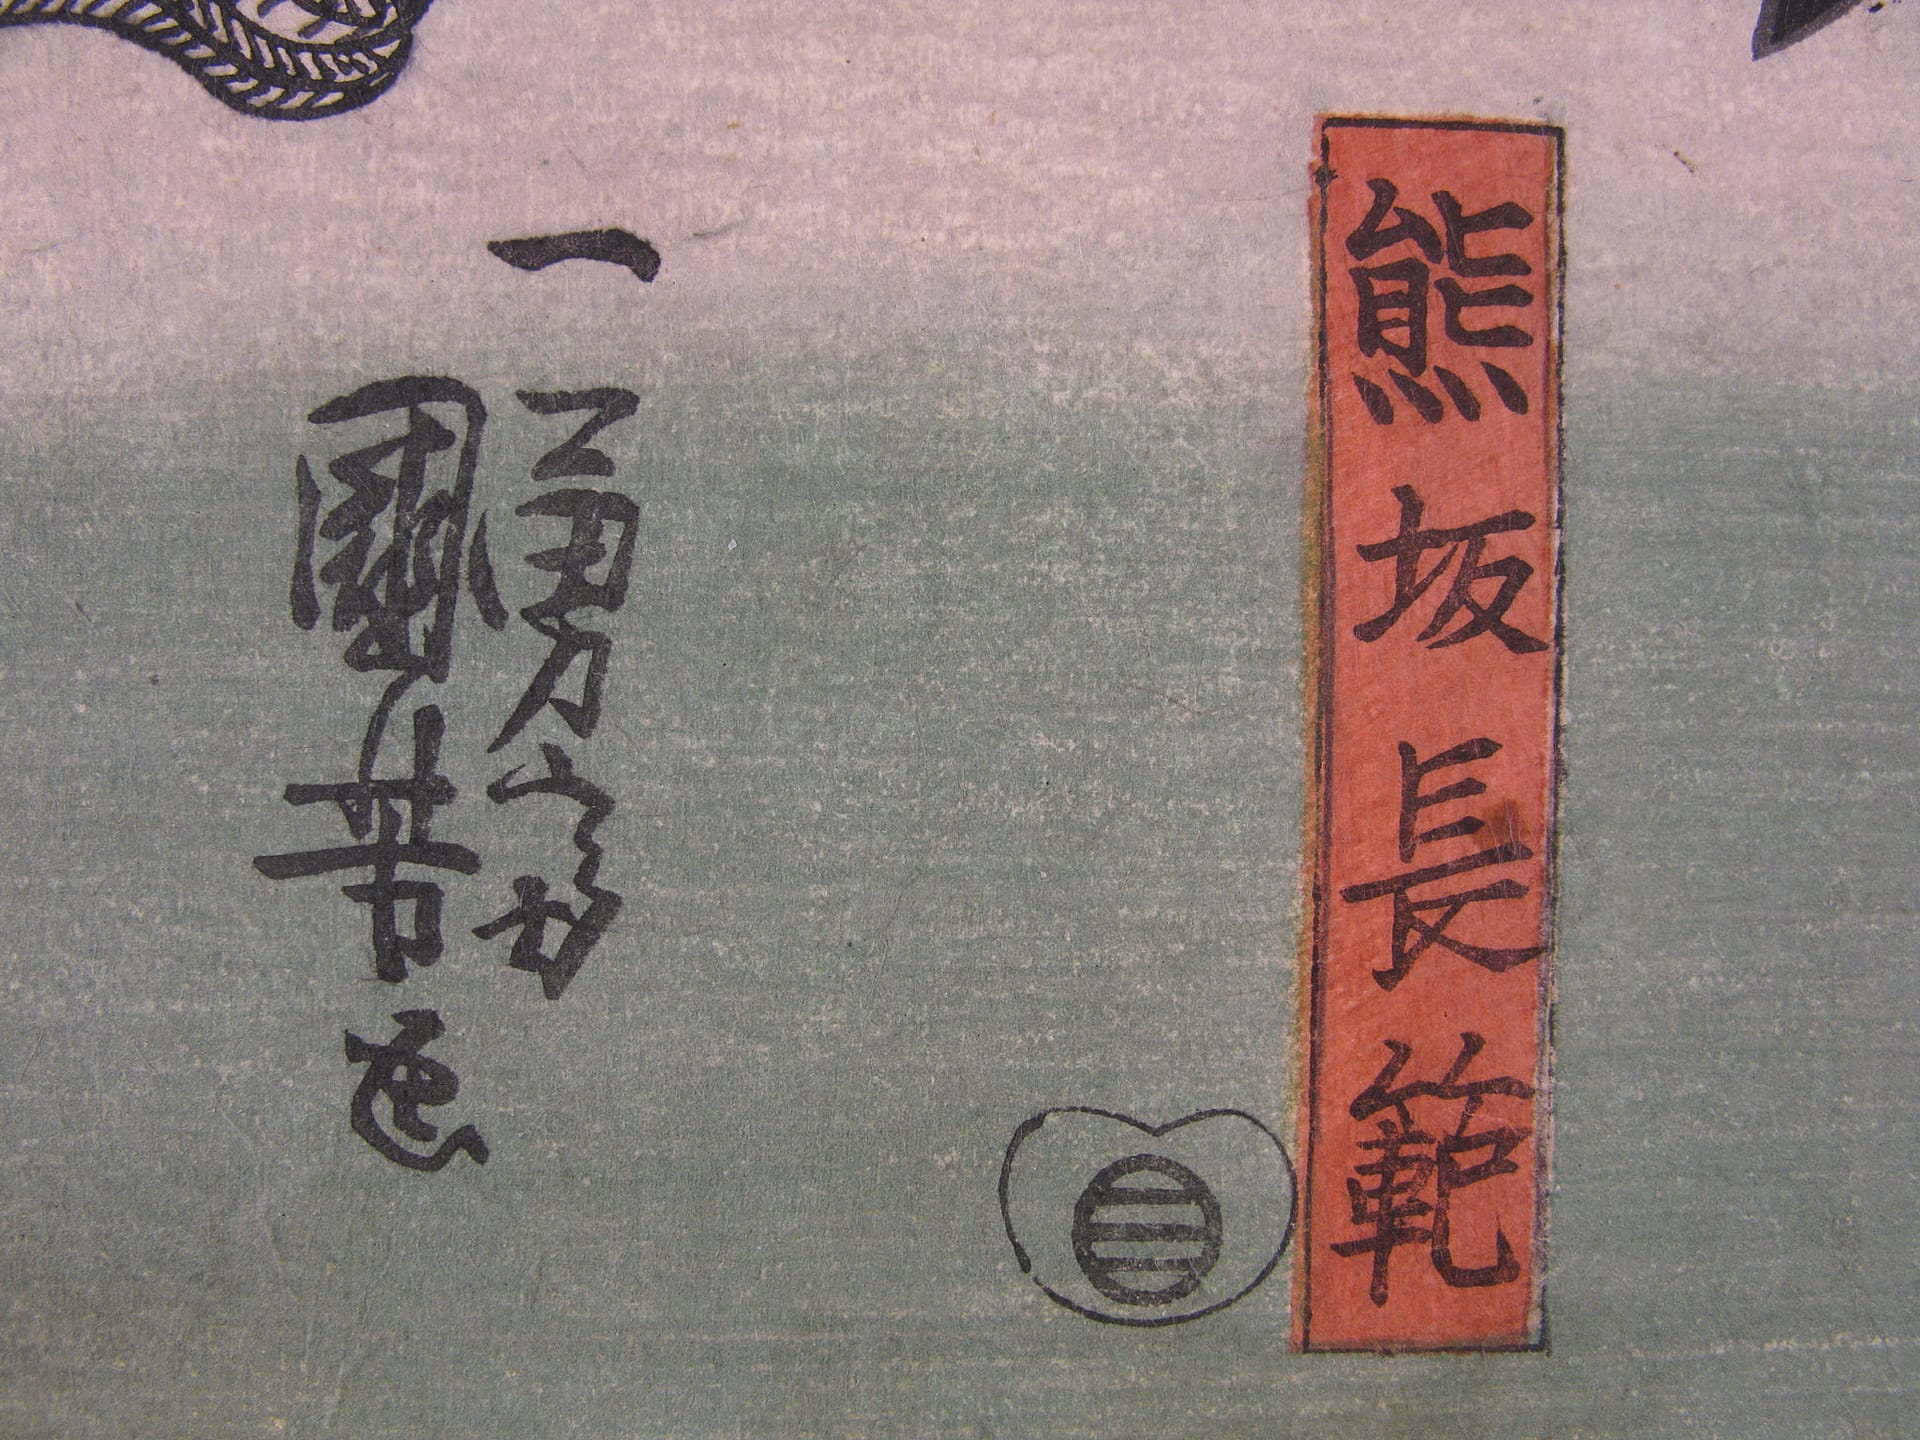 熊坂長範
一勇斎
國芳画